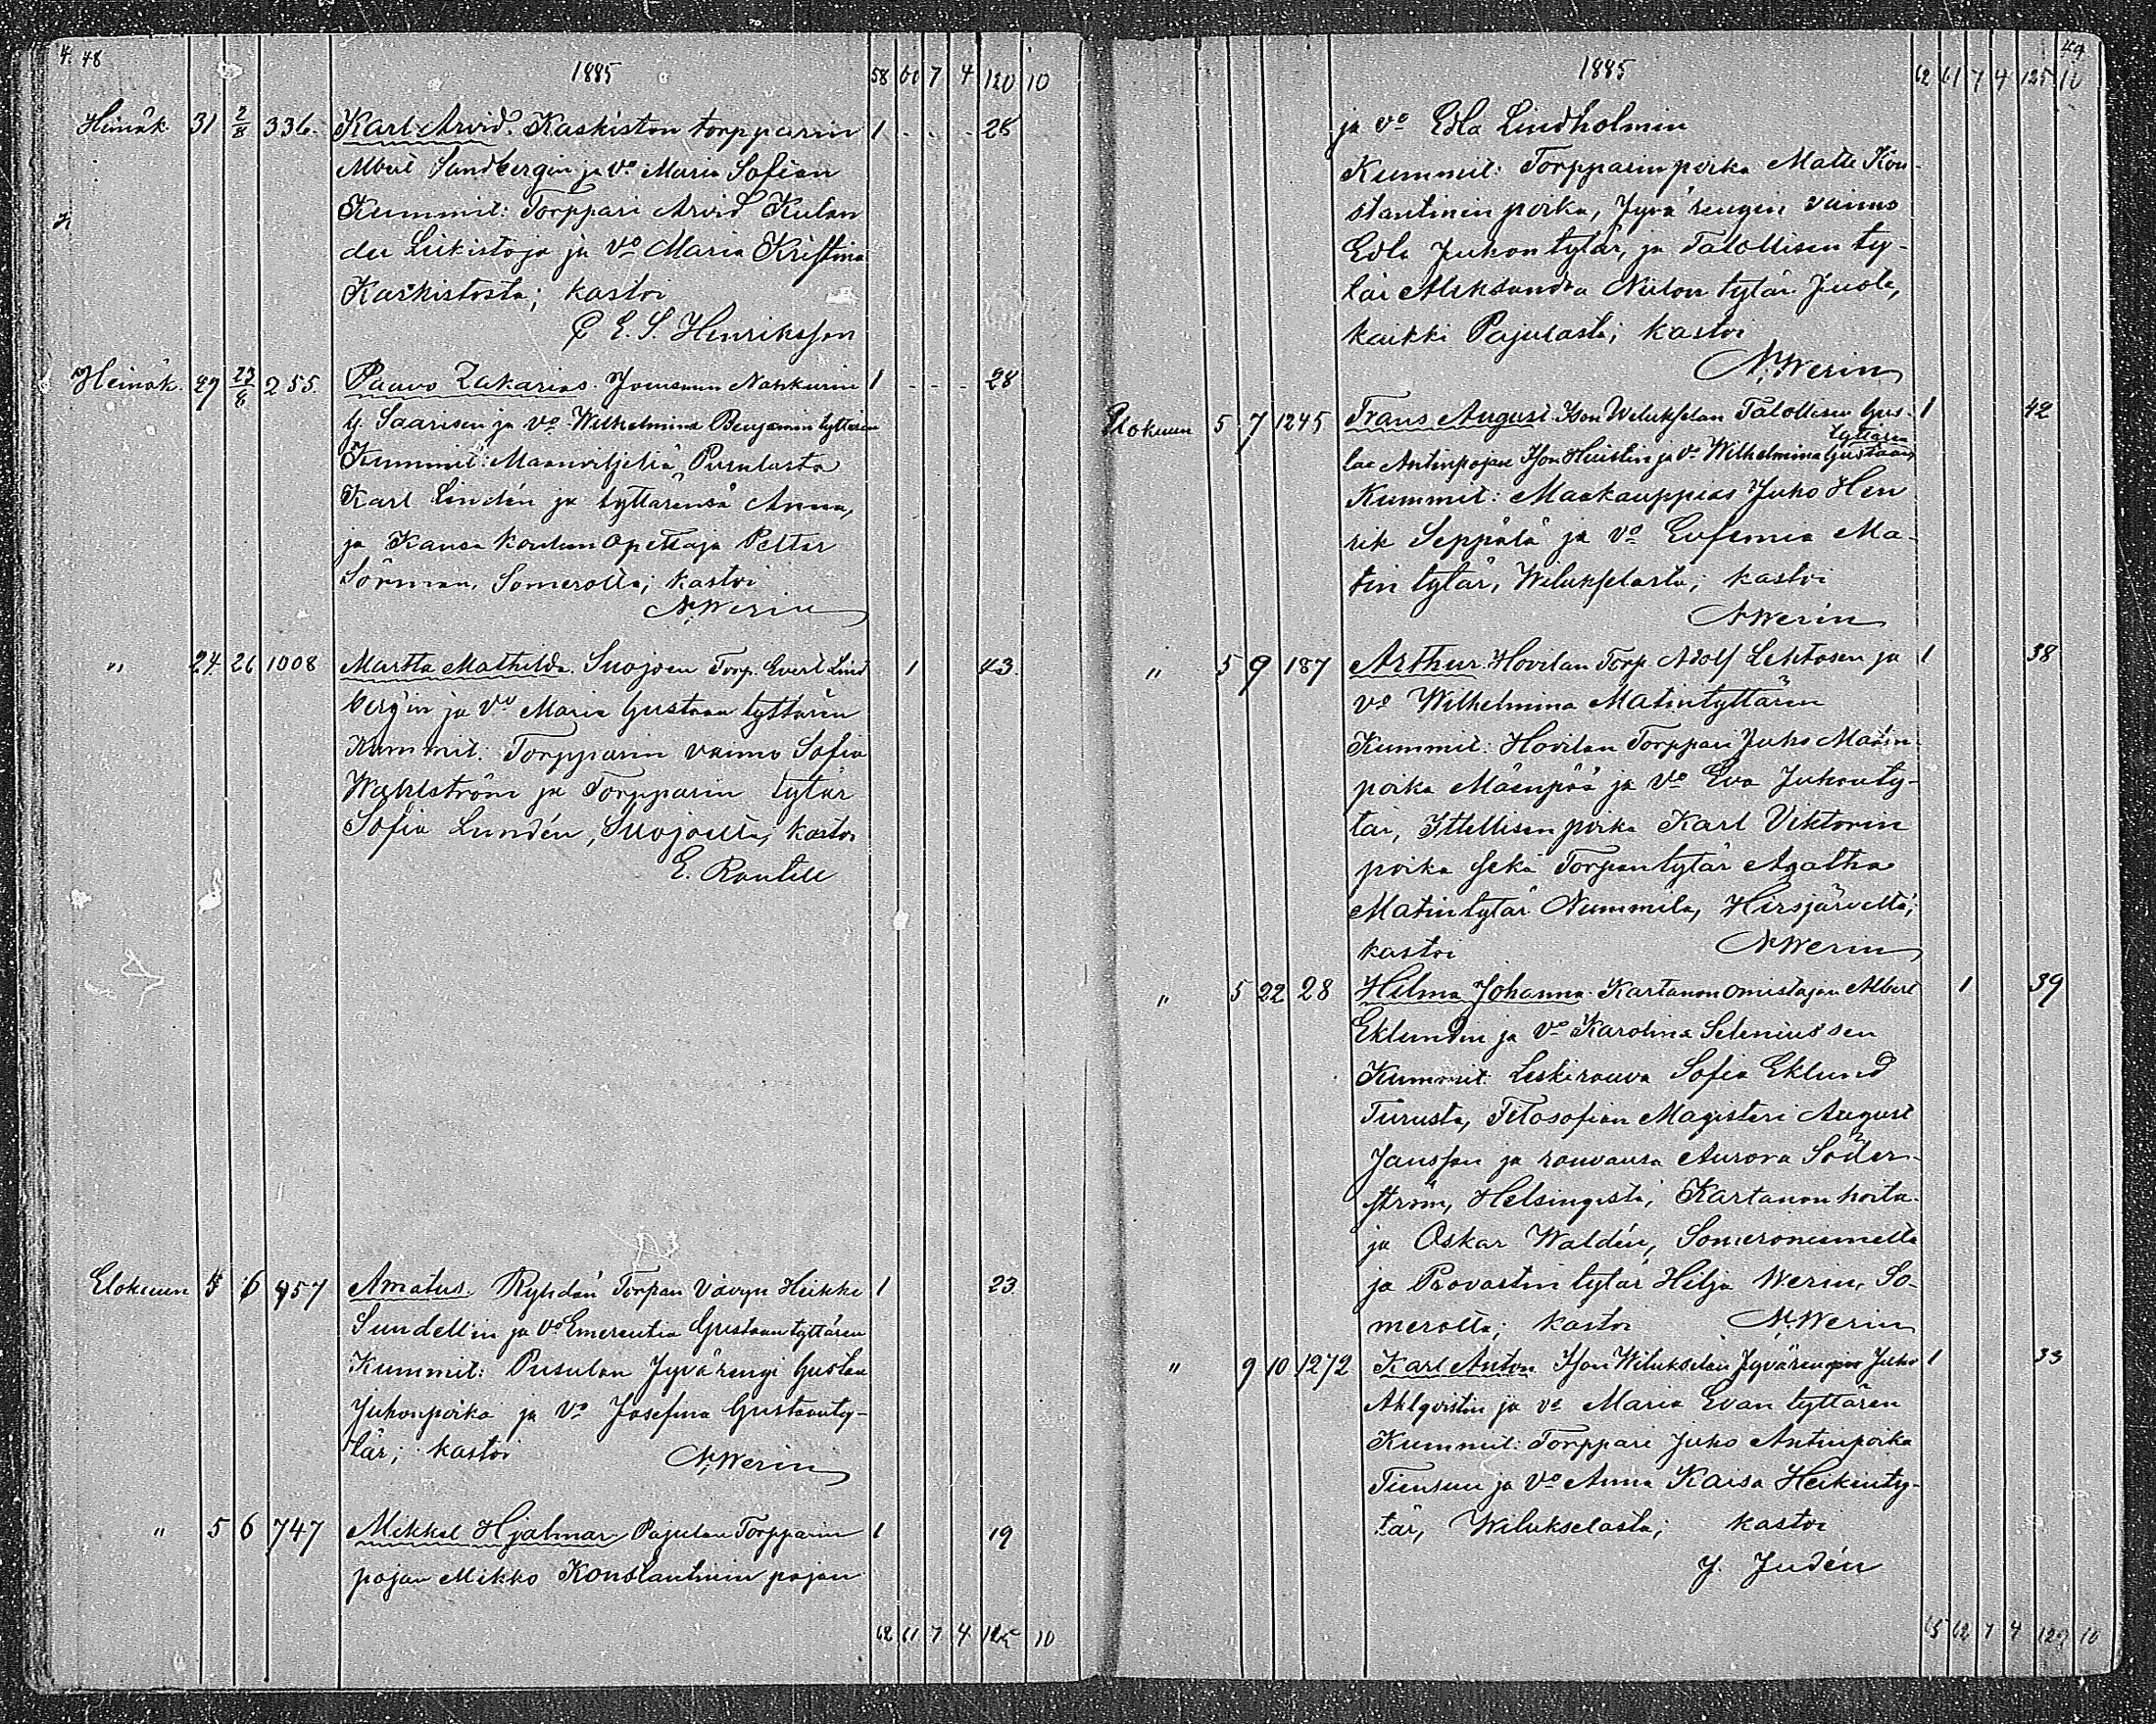 48
1885
58 60 7 4 120 10
Heinäk. 31 2/8 336. Karl Arvid. Kaskiston torpparin 1 28
Albert Sandbergin ja vo. Maria Sofian
Kummit: Torppari Arvid Kulan
der Liikistoja ja vo Maria Kristina
Kaskistosta; kastoi
E. S. Henriksson
Heinäk. 29 23/8 255. Paavo Zakarias. Joensuun Nahkurin 1 28
G. Saarisen ja vo Wilhelmina Benjamin tyttären
Kummit: Maanviljeliä Pusulasta
Karl Lindén ja tyttärensä Anna,
ja Kansakoulun Opettaja Petter
Sörman, Somerolla; kastoi
N. Werin
" 24. 26 1008 Martta Mathilda. Suojoen Torp. Evert Lind 1 43.
berg'in ja vo Maria Gustaan tyttären
Kummit: Torpparin vaimo Sofia
Wahlström ja Torpparin tytär
Sofia Lundén, Suojoelta; kastoi
E. Rantell
Elokuun 5 6 957 Amatus. Ryhdän Torpan Vävyn Heikki 1 23
Sundell'in ja vo Emerentia Gustaan tyttären
Kummit: Pusulan Jyvärengi Gustaa
Juhonpoika ja vo Josefina Gustaanty-
tär; kastoi N. Werin
" 5 6 747 Mikkel Hjalmar Pajulan Torpparin 1 19
pojan Mikko Konstantinin pojan
62 61 7 4 125 10
49
1885
62 61 7 4 125 10
ja vo Edla Lindholmin
Kummit: Torpparinpoika Matti Kon-
stantinin poika, Jyvä rengin vaimo
Edla Juhon tytär, ja Talollisen ty-
tär Aleksandra Niilon tytär Juola,
kaikki Pajulasta; kastoi
N. Werin
Elokuun 5 7 1245 Frans August. Ison Wilukselan Talollisen Gus- 1 42
tyttären
taa Antinpojan Ison Heistin ja vo Wilhelmina Gustaan
Kummit: Maakauppias Juho Hen
rik Seppälä ja vo Eufemia Ma-
tin tytär, Wilukselasta; kastoi
N. Werin
" 5 9 187 Arthur. Hovilan Torp. Adolf Lehtosen ja 1 38
vo Wilhelmina Matintyttären
Kummit: Hovilan Torppari Juho Matin-
poika Mäenpää ja vo Eva Juhonty-
tär, Ittellisen poika Karl Viktorin
poika sekä Torpantytär Agatha
Matintytär Nummila, Hirsjärveltä;
kastoi N. Werin
" 5 22 28 Hilma Johanna. Kartanonomistajan Albert 1 39
Eklundin ja vo Karolina Selenius'sen
Kummit: Leskirouva Sofia Eklund
Turusta, Filosofian Magisteri August
Jansson ja rouvansa Aurora Söder-
ström, Helsingistä, Kartanon hoita-
ja Oskar Waldén, Someroniemeltä
ja Provastin tytär Hilja Werin, So-
merolta; kastoi N. Werin
" 9 10 1272 Karl Anton. Ison Wilukselan Jyvärengin Juho 1 33
Ahlqvistin ja vo Maria Evan tyttären
Kummit: Torppari Juho Antinpoika
Tiensuu ja vo Anna Kaisa Heikinty-
tär, Wilukselasta; kastoi
J. Judén
65 62 7 4 129 10